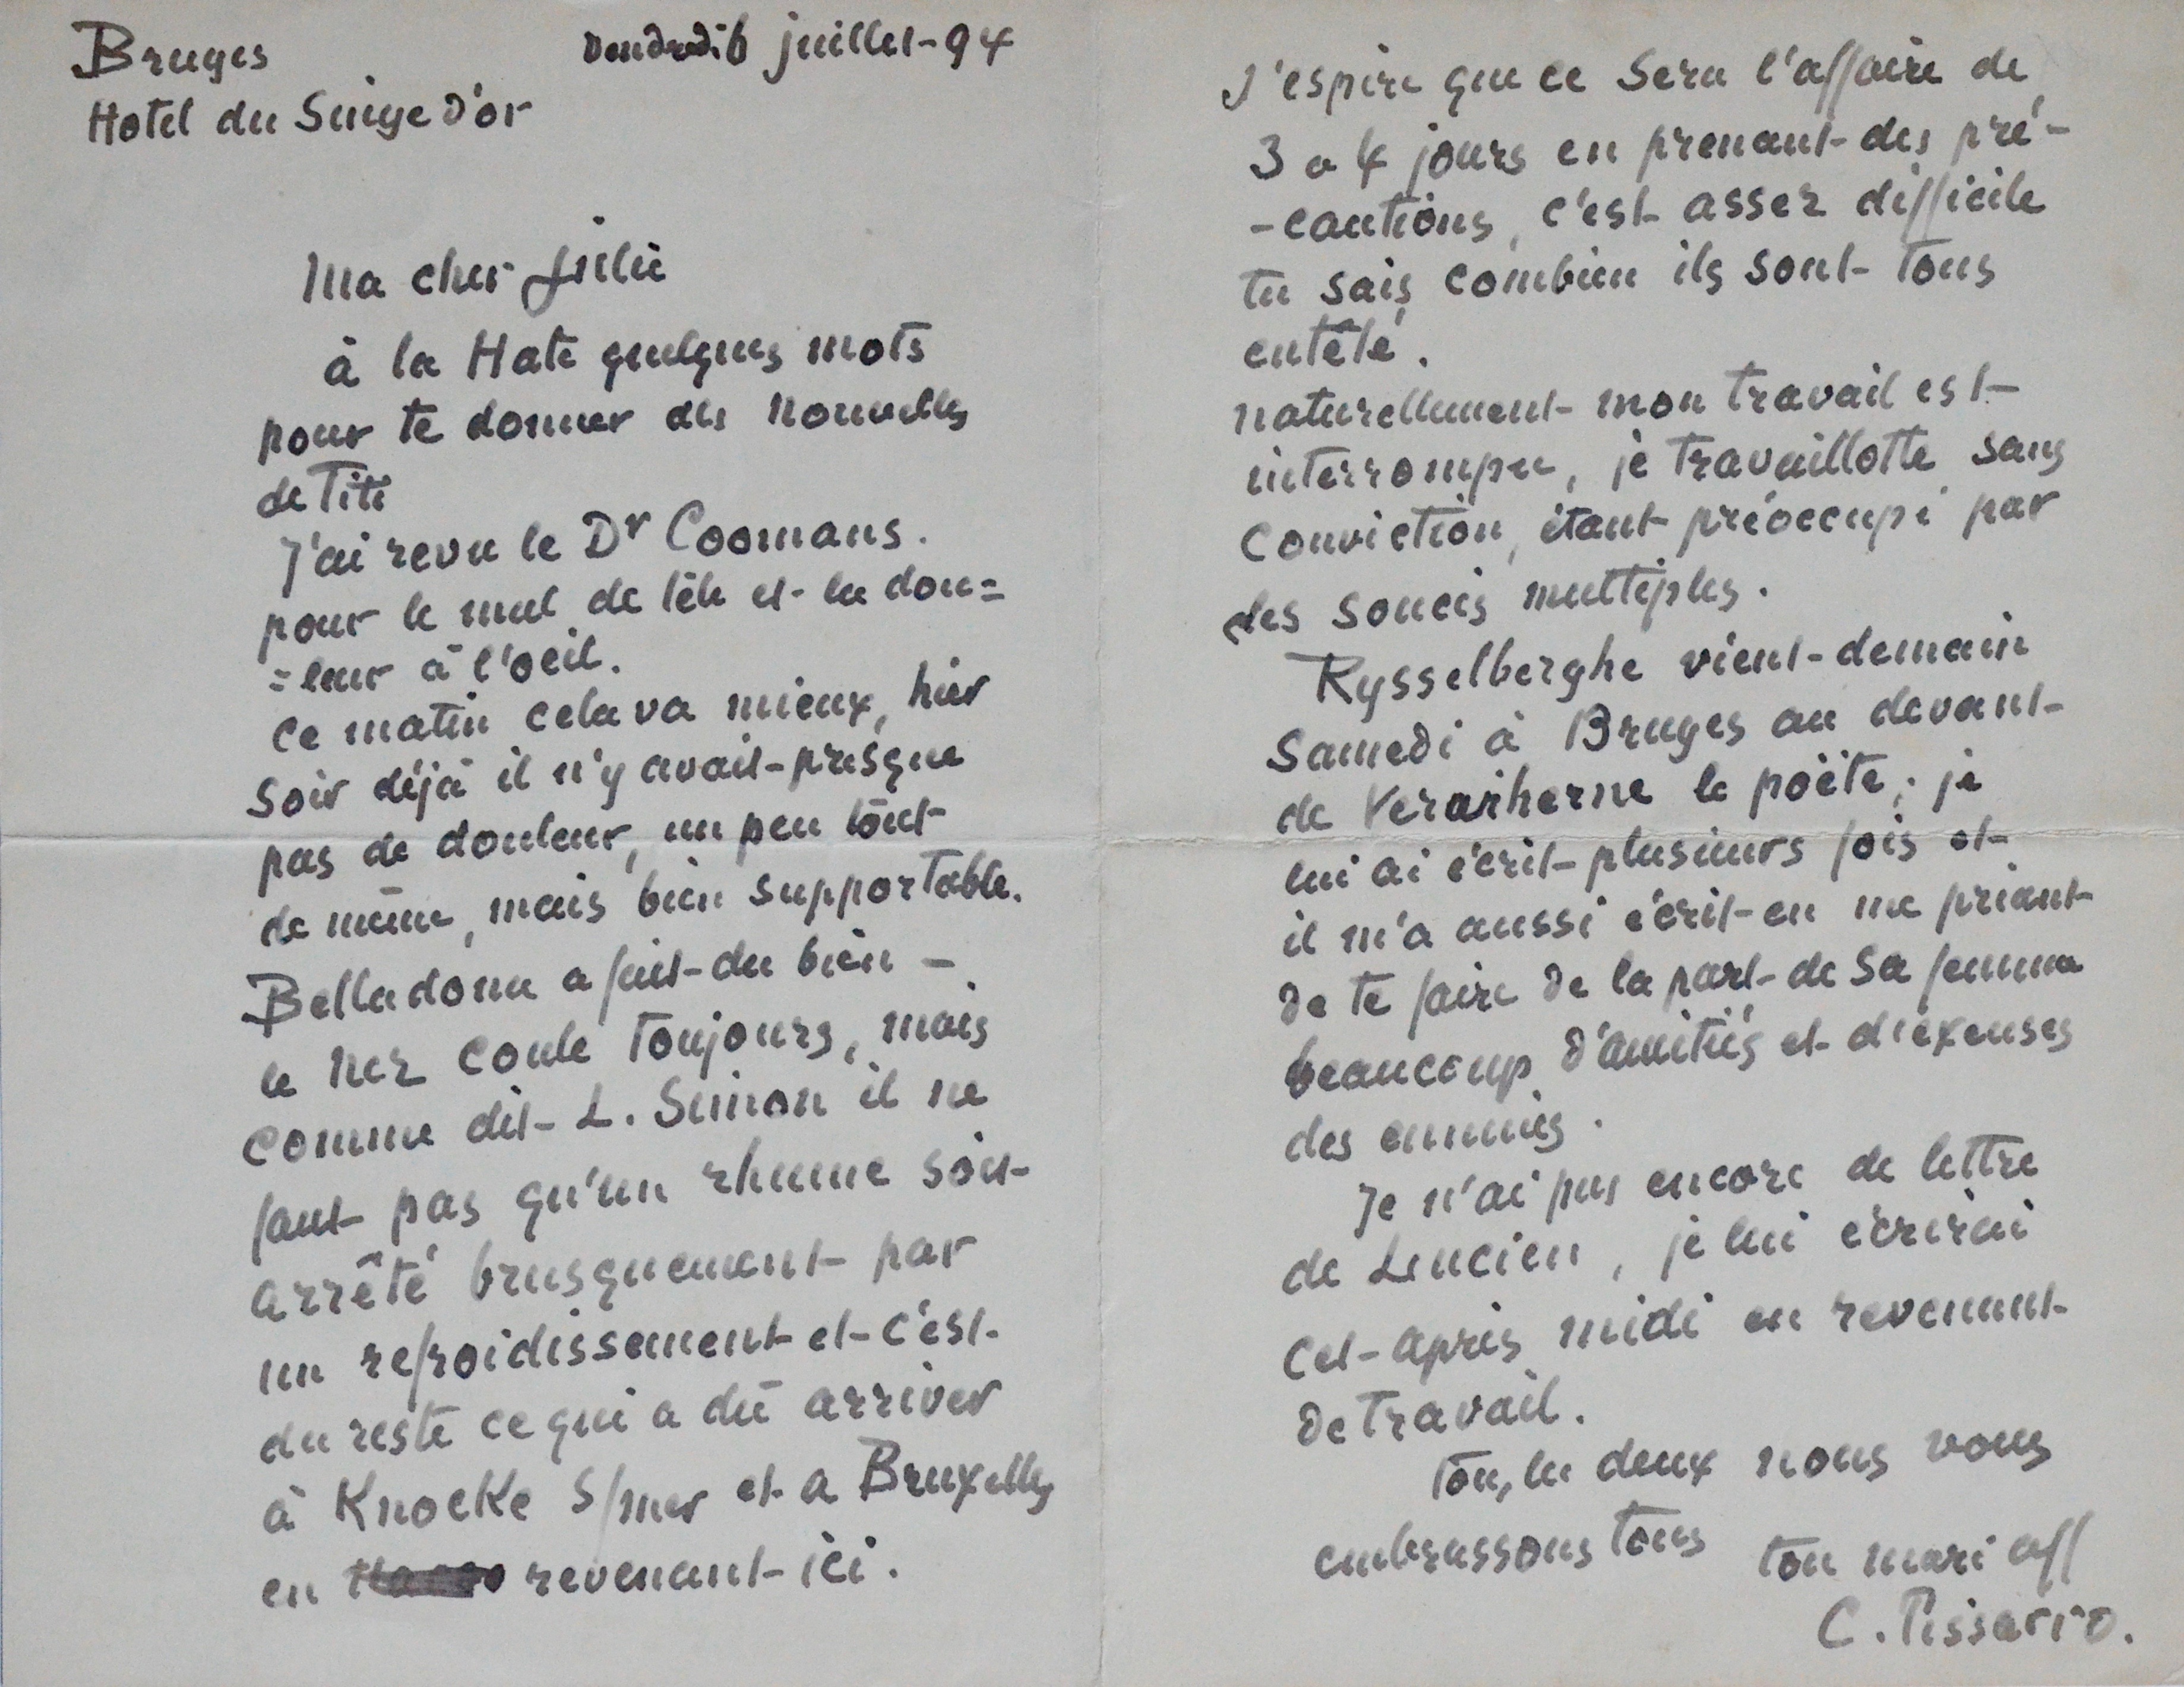 Bruges
Hotel du Singe d'or
Vendredi 6 juillet - 94
Ma cher Julie
à la Hate quelques mots
pour te donner des nouvelles
de Titi
J'ai revu le Dr Coomans.
pour le mal de tête et la dou=
=leur à l'oeil.
ce matin cela va mieux, hier
soir déjà il n'y avait presque
pas de douleur, un peu tout
de même, mais bien supportable.
Belladona a fait du bien -
le nez coule toujours, mais
comme dit L. Simon il ne
faut pas qu'un rhume soit
arrêté brusquement par
un refroidissement et c'est
du reste ce qui a dû arriver
à Knocke s/mer et a Bruxelles
en revenant ici.
J'espère que ce sera l'affaire de
3 a 4 jours en prenant des pré-
-cautions, c'est assez difficile
tu sais combien ils sont tous
entêté.
naturellement mon travail est
interrompu, je travaillotte sans
conviction, étant préoccupé par
des soucis multiples.
Rysselberghe vient demain
Samedi à Bruges au devant
de Verairherne le poëte; je
lui ai écrit plusieurs fois et
il m'a aussi écrit en me priant
de te faire de la part de sa femme
beaucoup d'amitiés et d'éxcuses
des ennuies.
Je n'ai pas encore de lettre
de Lucien, je lui écrirai
cet après midi en revenant
de travail.
Tous les deux nous vous
embrassons tous
ton mari aff
C. Pissarro.